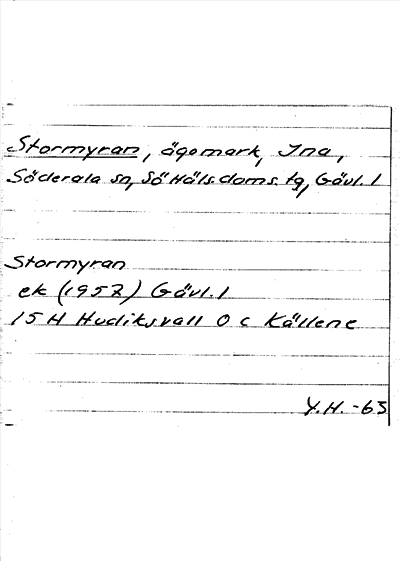 Stormyran, ägomark, Ina,
Söderala sn, Sö Häls. doms. tg, Gävl. l
Stormyran
ek (1957) Gävl. l
15 H Hudiksvall 0 c Källene
Y.H. -63